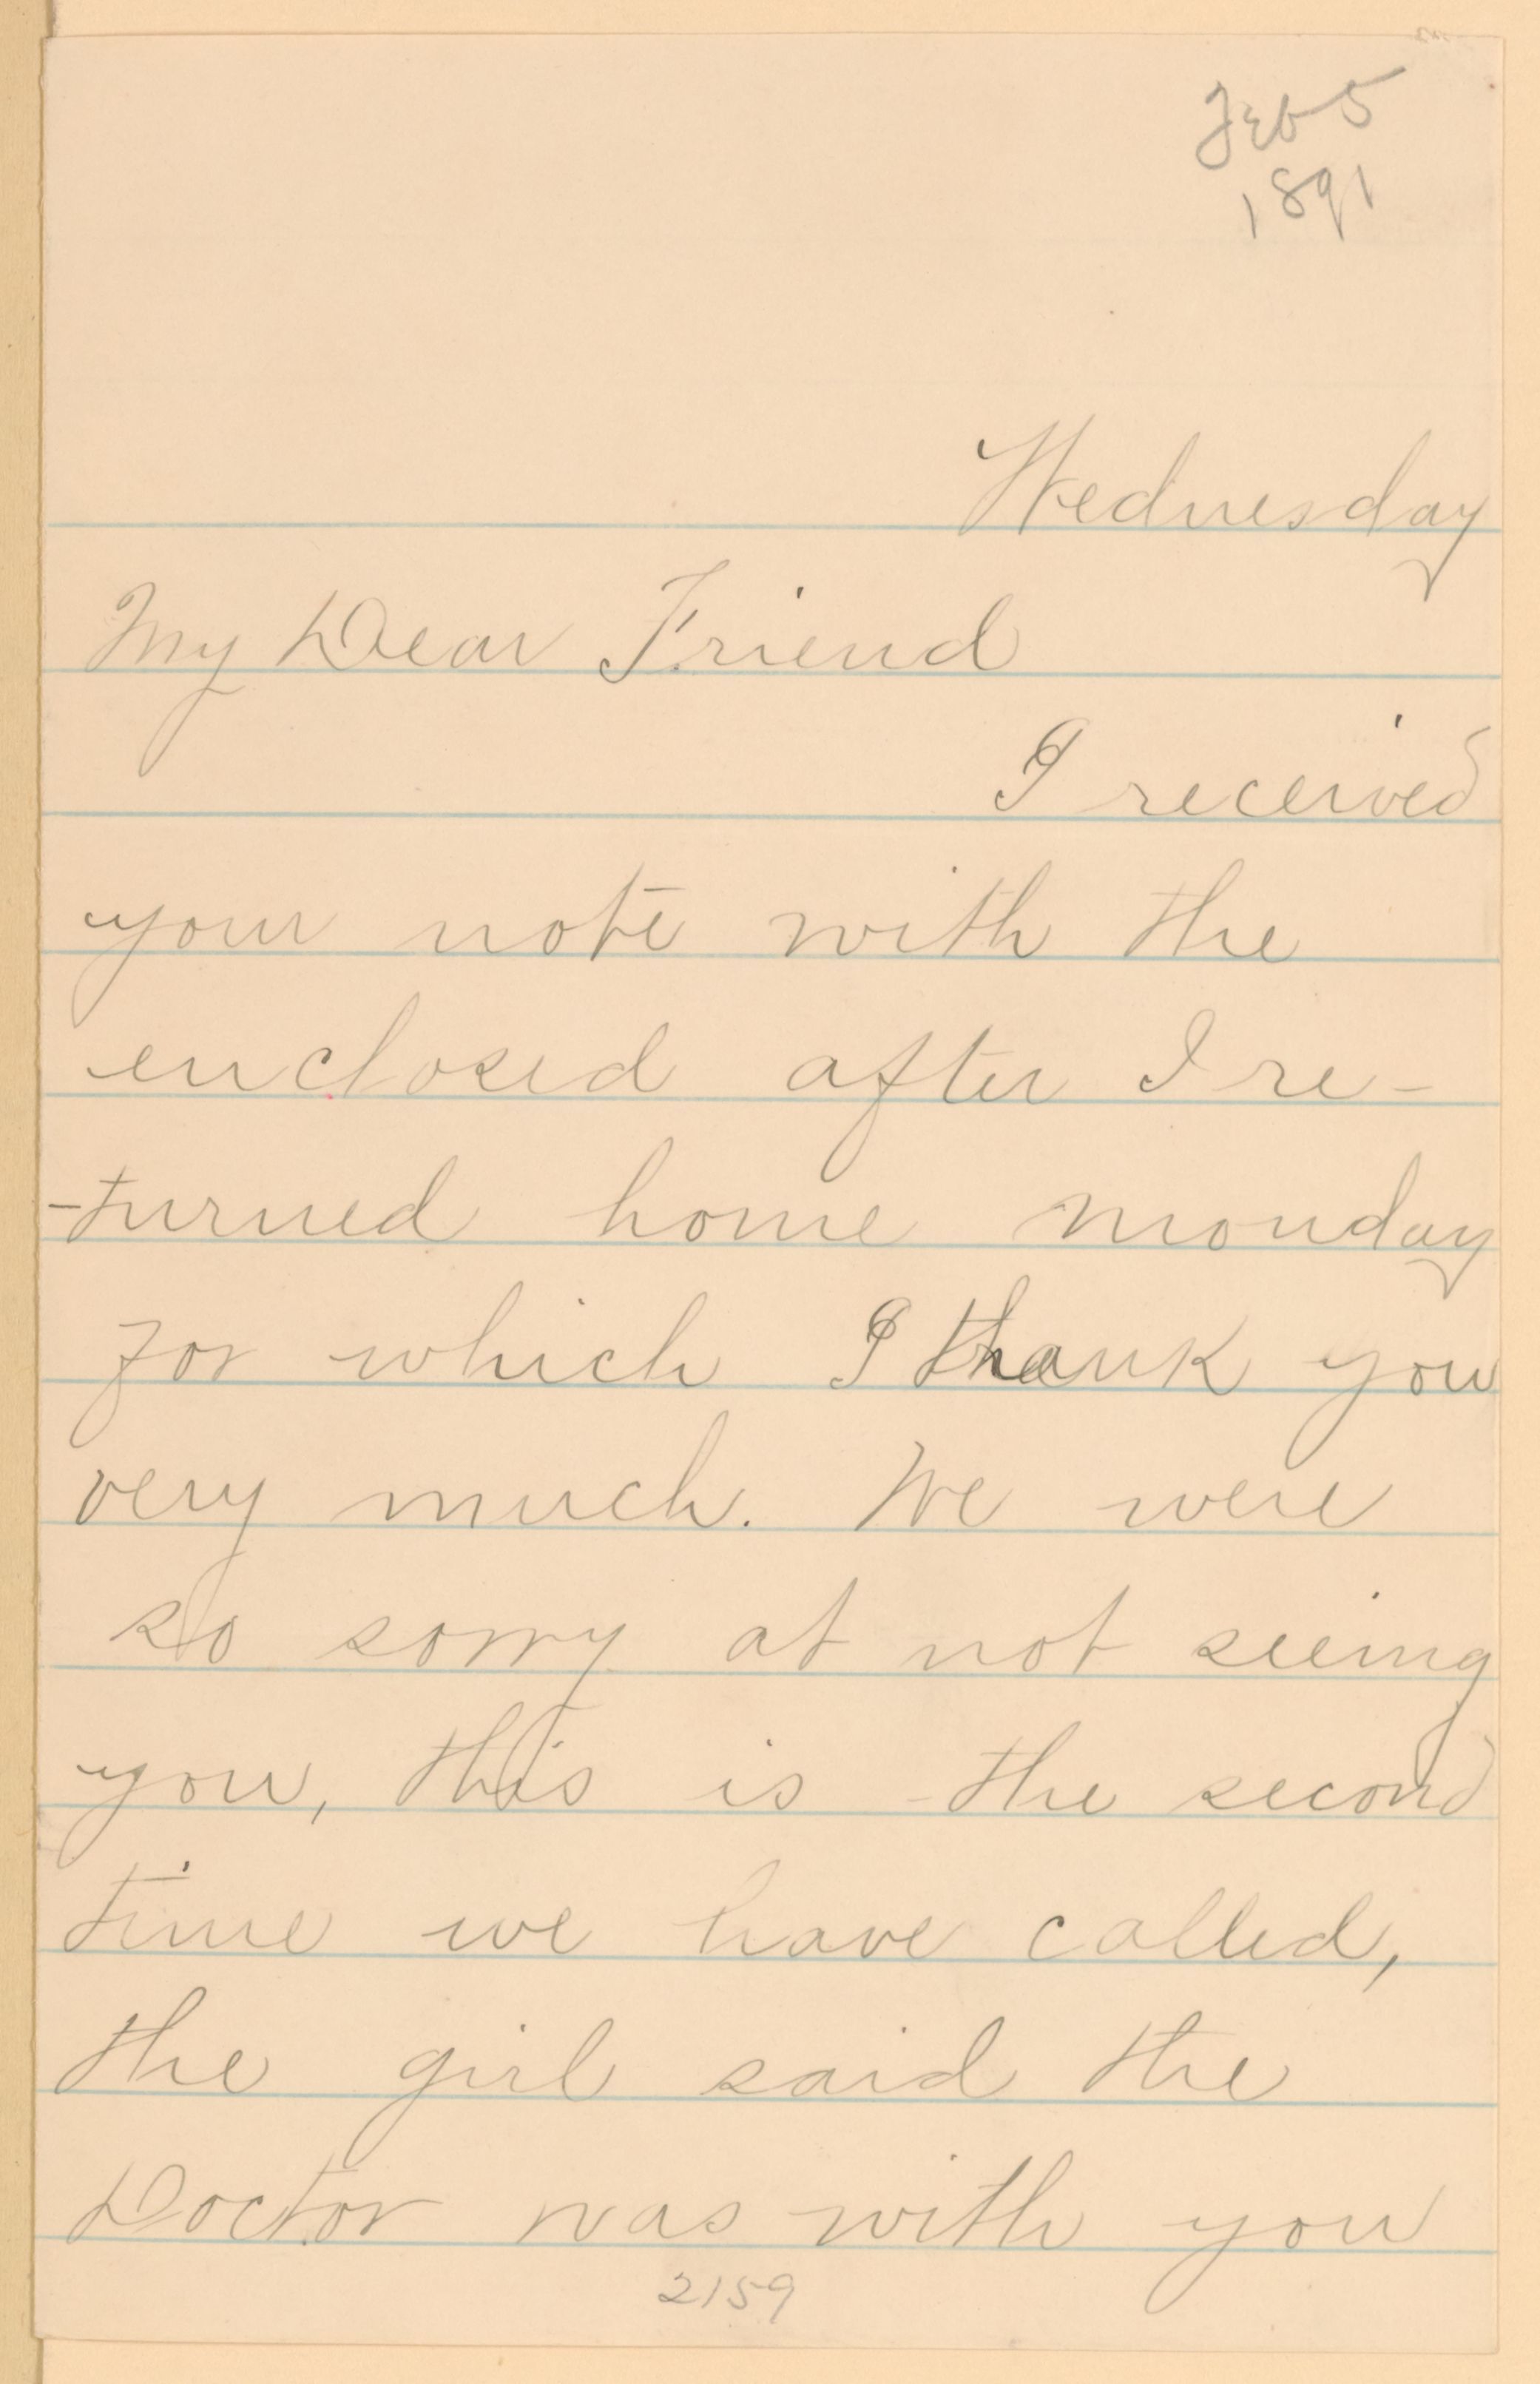 Feb 5
1891
Wednesday
My Dear Friend
I received
your note with the
enclosed after I re-
-turned home Monday
for which I thank you
very much. We were
so sorry at not seeing
you, this is the second
time we have called,
the girl said the
Doctor was with you
2159